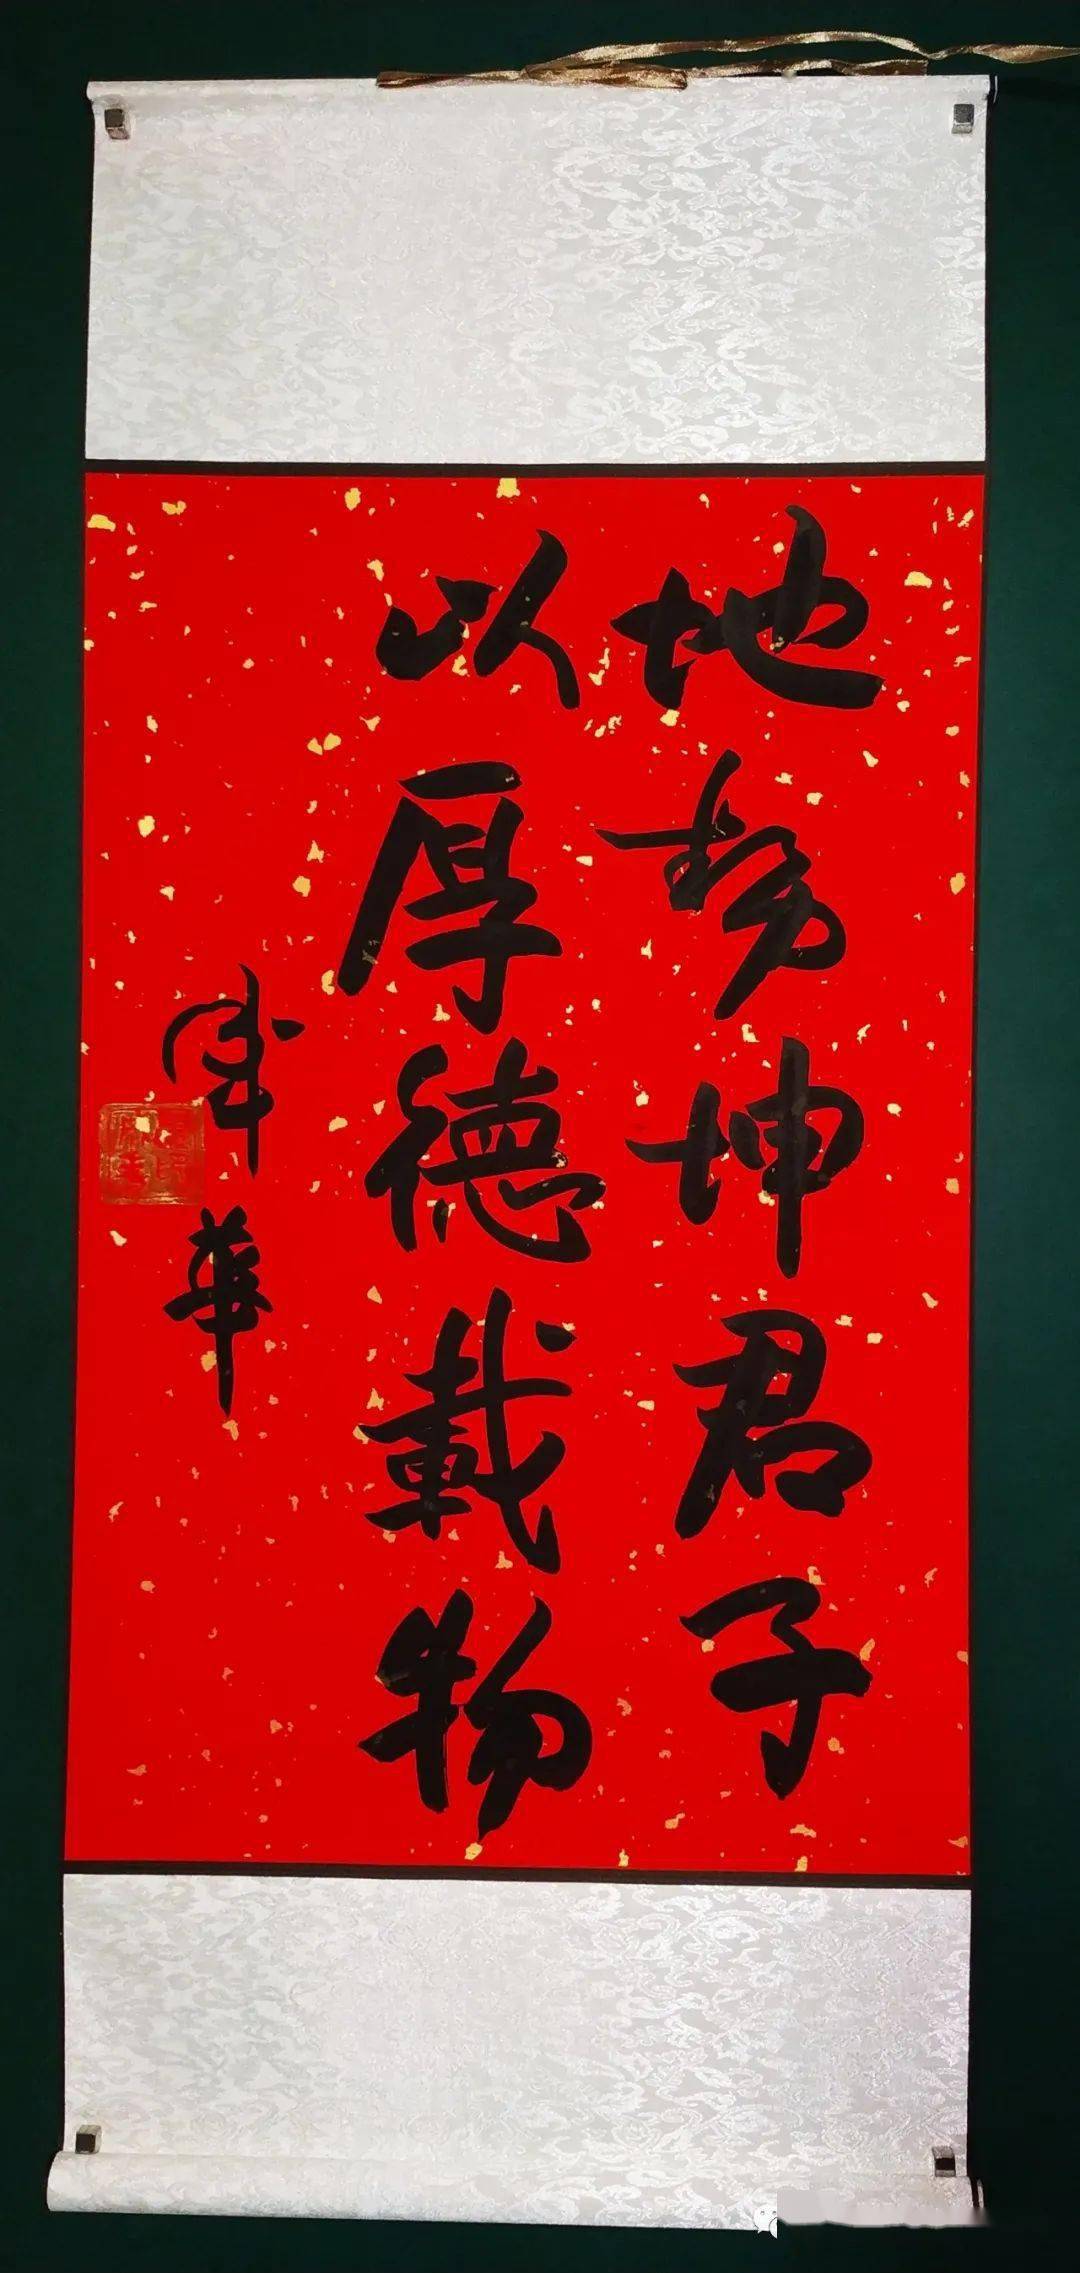 地势坤君子
以厚德载物
华